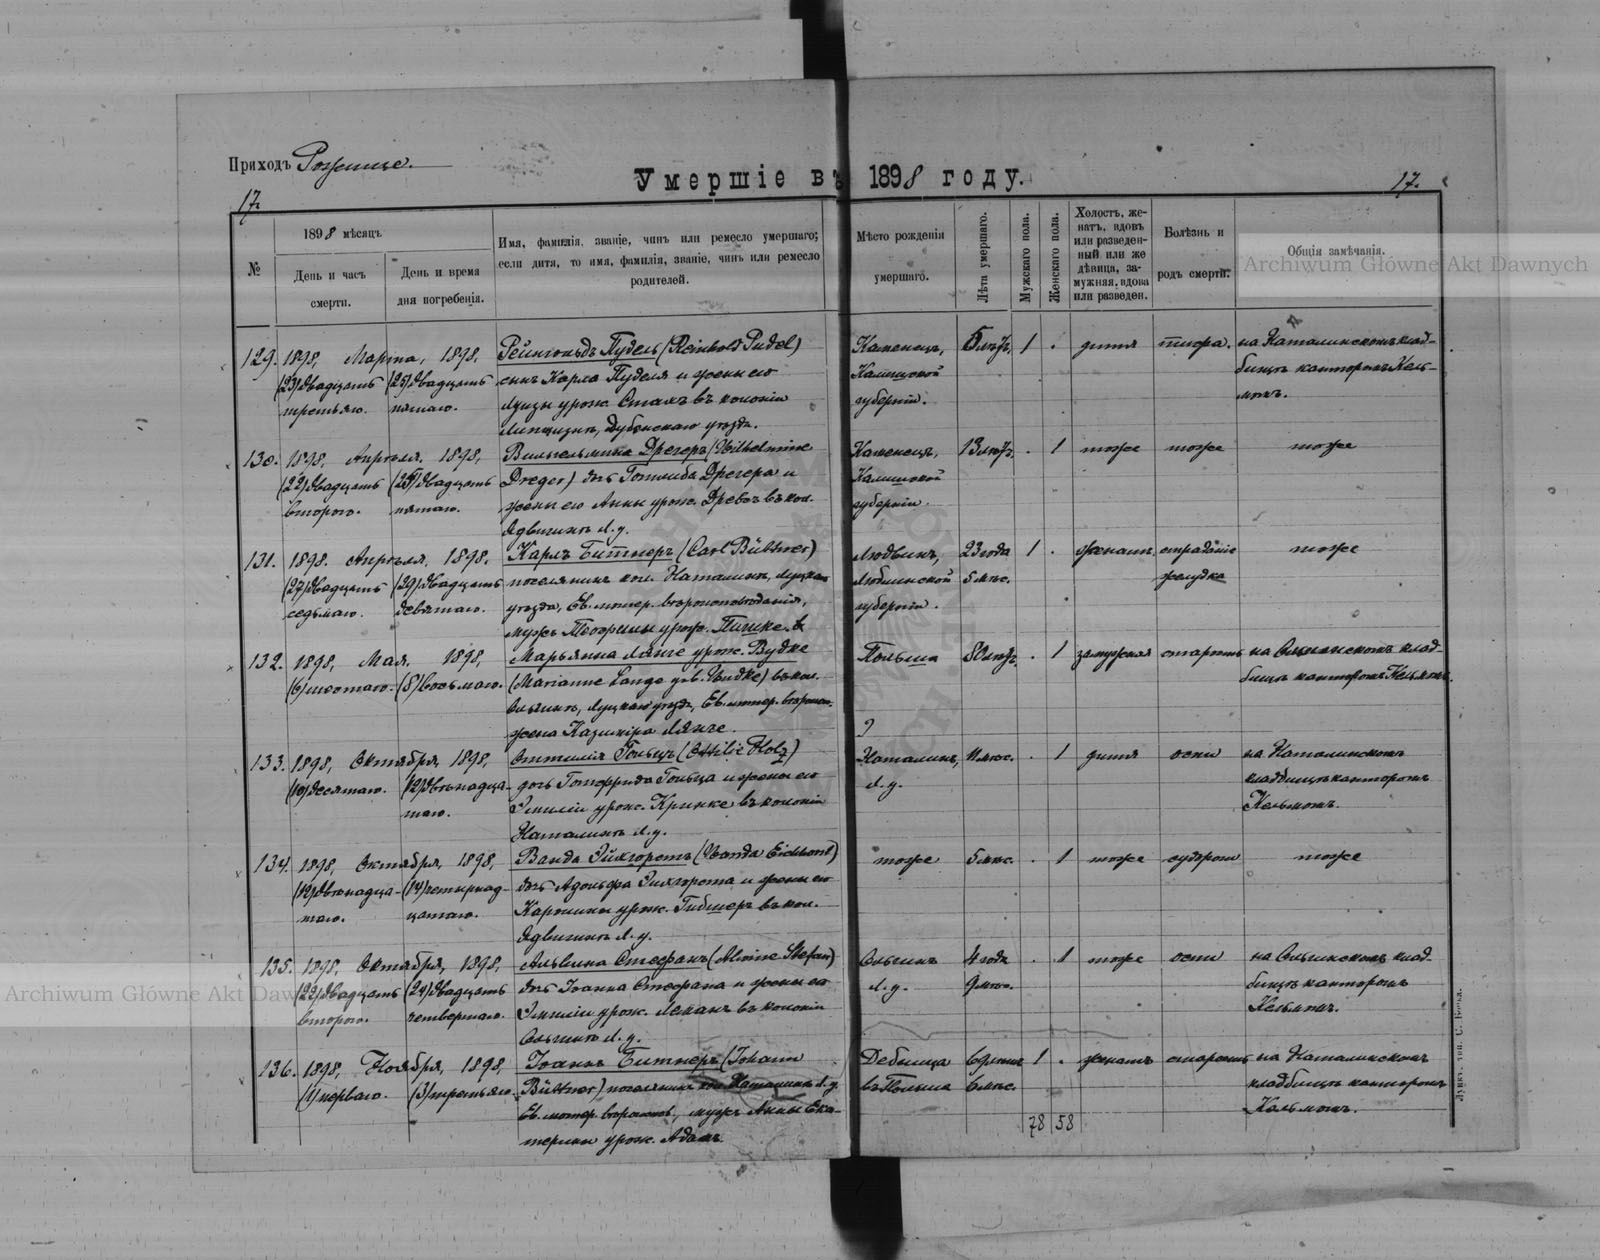 Приходъ Рожище.
Умершіе въ 1898 году.
17.
17.
№
1898 мѣсяцъ
День и часъ смерти.
День и время дня погребенія.
Имя, фамилія, званіе, чинъ или ремесло умершаго; если дитя, то имя, фамилія, званіе, чинъ или ремесло родителей.
Мѣсто рожденія умершаго.
Лѣта умершаго.
Мужскаго пола.
Женскаго пола.
Холостъ, женатъ, вдовъ или разведенный или же дѣвица, замужняя, вдова или разведен.
Болѣзнь и родъ смерти.
Общія замѣчанія.
Archiwum Główne Akt Dawnych
129. 1898, Марта, 1898, Рейнгольдъ Пудель (Reinhold Pudel) Каменецъ, 5 лѣтъ, 1 . дитя тифа. на Наталинскомъ клад-
(23) двадцать (25) двадцать сынъ Карла Пуделя и жены его Калишской бищѣ канторомъ Кель-
третьяго. пятаго. Луизы урож. Стахъ въ колоніи губерніи. момъ.
Дубенскаго уѣзда.
130. 1898, Апрѣля, 1898, Вильгельмина Дрегеръ (Wilhelmine Каменецъ, 13 лѣтъ . 1 тоже тоже тоже
(22) двадцать (25) двадцать Dreger) дчь Готлиба Дрегера и Калишской
второго. пятаго. жены его Анны урож. въ кол. губерніи
Ядвигинъ Л. у.
131. 1898. Апрѣля, 1898. Карлъ Битнеръ (Carl Büttner) Людвинъ, 23 года 1 . женатъ, страданіе тоже
(27) двадцать (29) двадцать поселянинъ кол. Наталинъ, Луцкаго Люблинской 5 мѣс. желудка
седьмаго. девятаго. уѣзда, Ев. лютер. вѣроисповѣданія, губерніи.
мужъ урож.
132. 1898, Мая, 1898, Марьянна Лянге урож. Вудке Польша 80 лѣтъ . 1 замужняя старость на Ольгинскомъ клад-
(6) шестаго. (8) восьмаго. (Marianne Lange geb. Wudke) въ кол. бищѣ канторомъ Кельмомъ.
Ольгинъ, Луцкаго уѣзда, Ев. лютер. вѣроисп.
жена Казиміра Лянге. ?
133. 1898, Октября, 1898, Оттилія Гольцъ (Ottilie Holz) Наталинъ, 11 мѣс. . 1 дитя оспы на Наталинскомъ
(10) десятаго. (12) двѣнадца- дочь Готфрида Гольца и жены его Л. у. кладбищѣ канторомъ
таго. Эмиліи урож. Кринке въ колоніи Кельмомъ.
Наталинъ Л. у.
134. 1898, Октября, 1898, Ванда Эйхгорстъ (Wanda Eichhorst) тоже 5 мѣс. . 1 тоже судороги тоже
(12) двѣнадца- (14) четырнад- дчь Адольфа Эйхгорста и жены его
таго. цатаго. Каролины урож. въ кол.
Ядвигинъ Л. у.
135. 1898, Октября, 1898, Альвина Стефанъ (Alwine Stefan) Ольгинъ 4 года . 1 тоже оспы на Ольгинскомъ клад-
Archiwum Główne Akt Dawnych
(22) двадцать (24) двадцать дчь Іоанна Стефана и жены его Л. у. 9 мѣс. бищѣ канторомъ
второго. четвертаго. Эмиліи урож. Леманъ въ колоніи Кельмомъ.
Ольгинъ Л. у.
136. 1898, Ноября, 1898, Іоаннъ Битнеръ (Johann Дебица 69 лѣтъ 1 . женатъ старость на Наталинскомъ
(1) перваго. (3) третьяго. Büttner) поселянинъ кол. Наталинъ Л. у. въ Польшѣ 6 мѣс. кладбищѣ канторомъ
Ев. лютер. вѣроисп., мужъ Анны Ека- Кельмомъ.
терины урож. Адамъ.
78 58